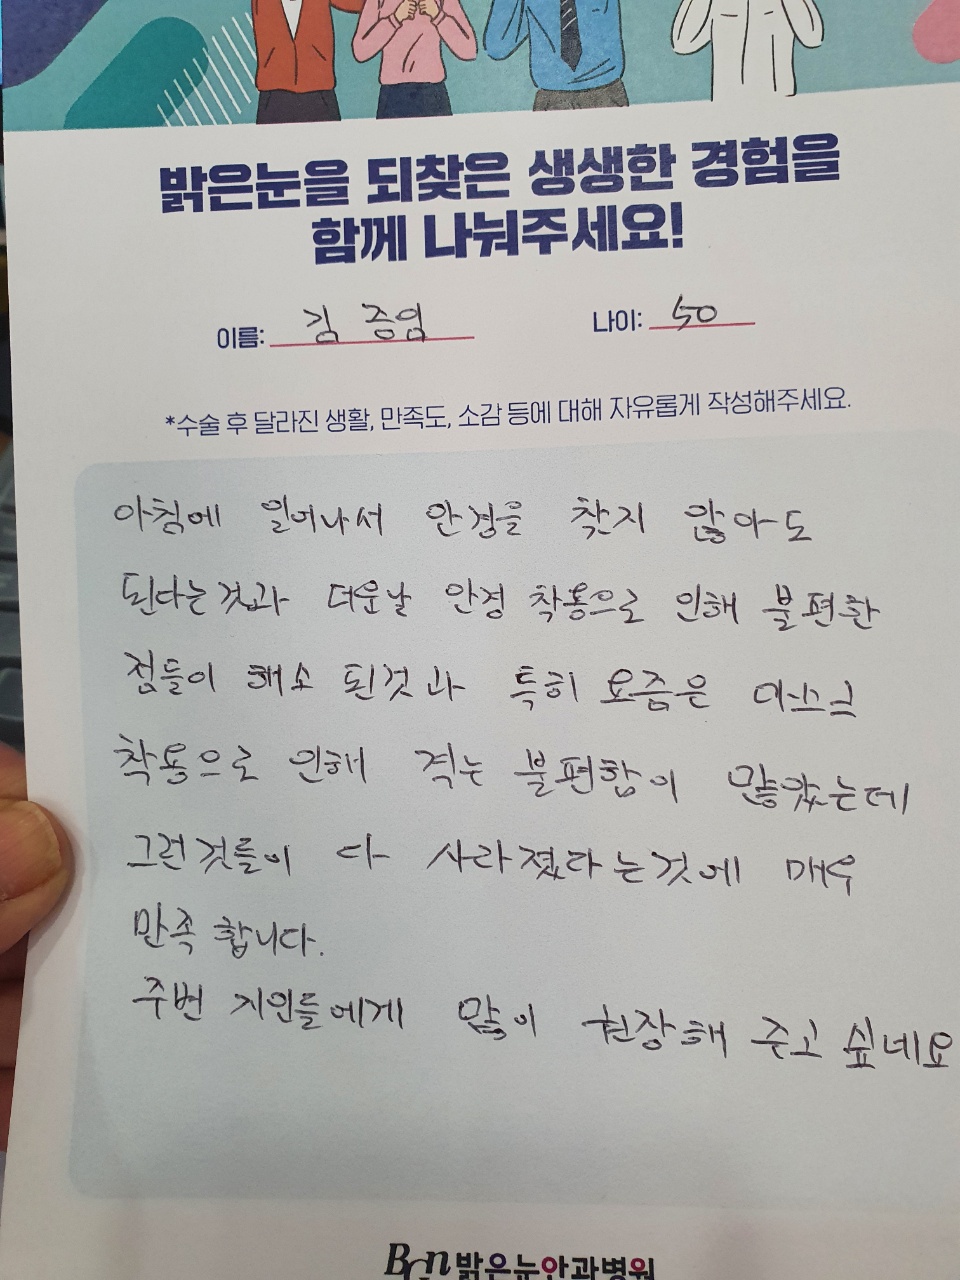 밝은눈을 되찾은 생생한 경험을
함께 나눠주세요!
이름: 김 증임 나이: 50
*수술 후 달라진 생활, 만족도, 소감 등에 대해 자유롭게 작성해주세요.
아침에 일어나서 안경을 찾지 않아도
된다는것과 더운날 안경 착용으로 인해 불편한
점들이 해소 된것과 특히 요즘은 마스크
착용으로 인해 격는 불편함이 많았는데
그런것들이 다 사라졌다는것에 매우
만족합니다.
주변 지인들에게 많이 권장해 주고 싶네요
BGN 밝은눈안과병원